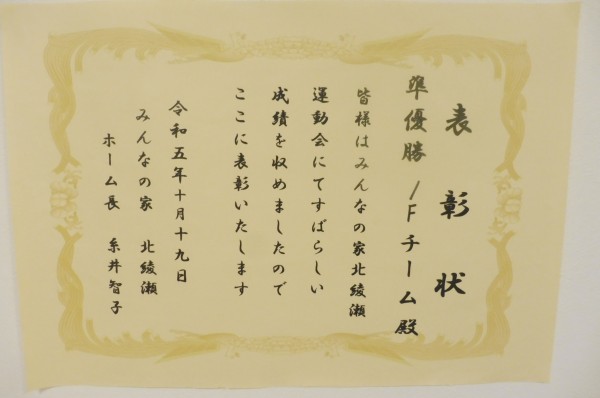 表彰状
準優勝 1Fチーム殿
皆様はみんなの家北綾瀬
運動会にてすばらしい
成績を収めましたので
ここに表彰いたします
令和五年十月十九日
みんなの家 北綾瀬
ホーム長 糸井智子